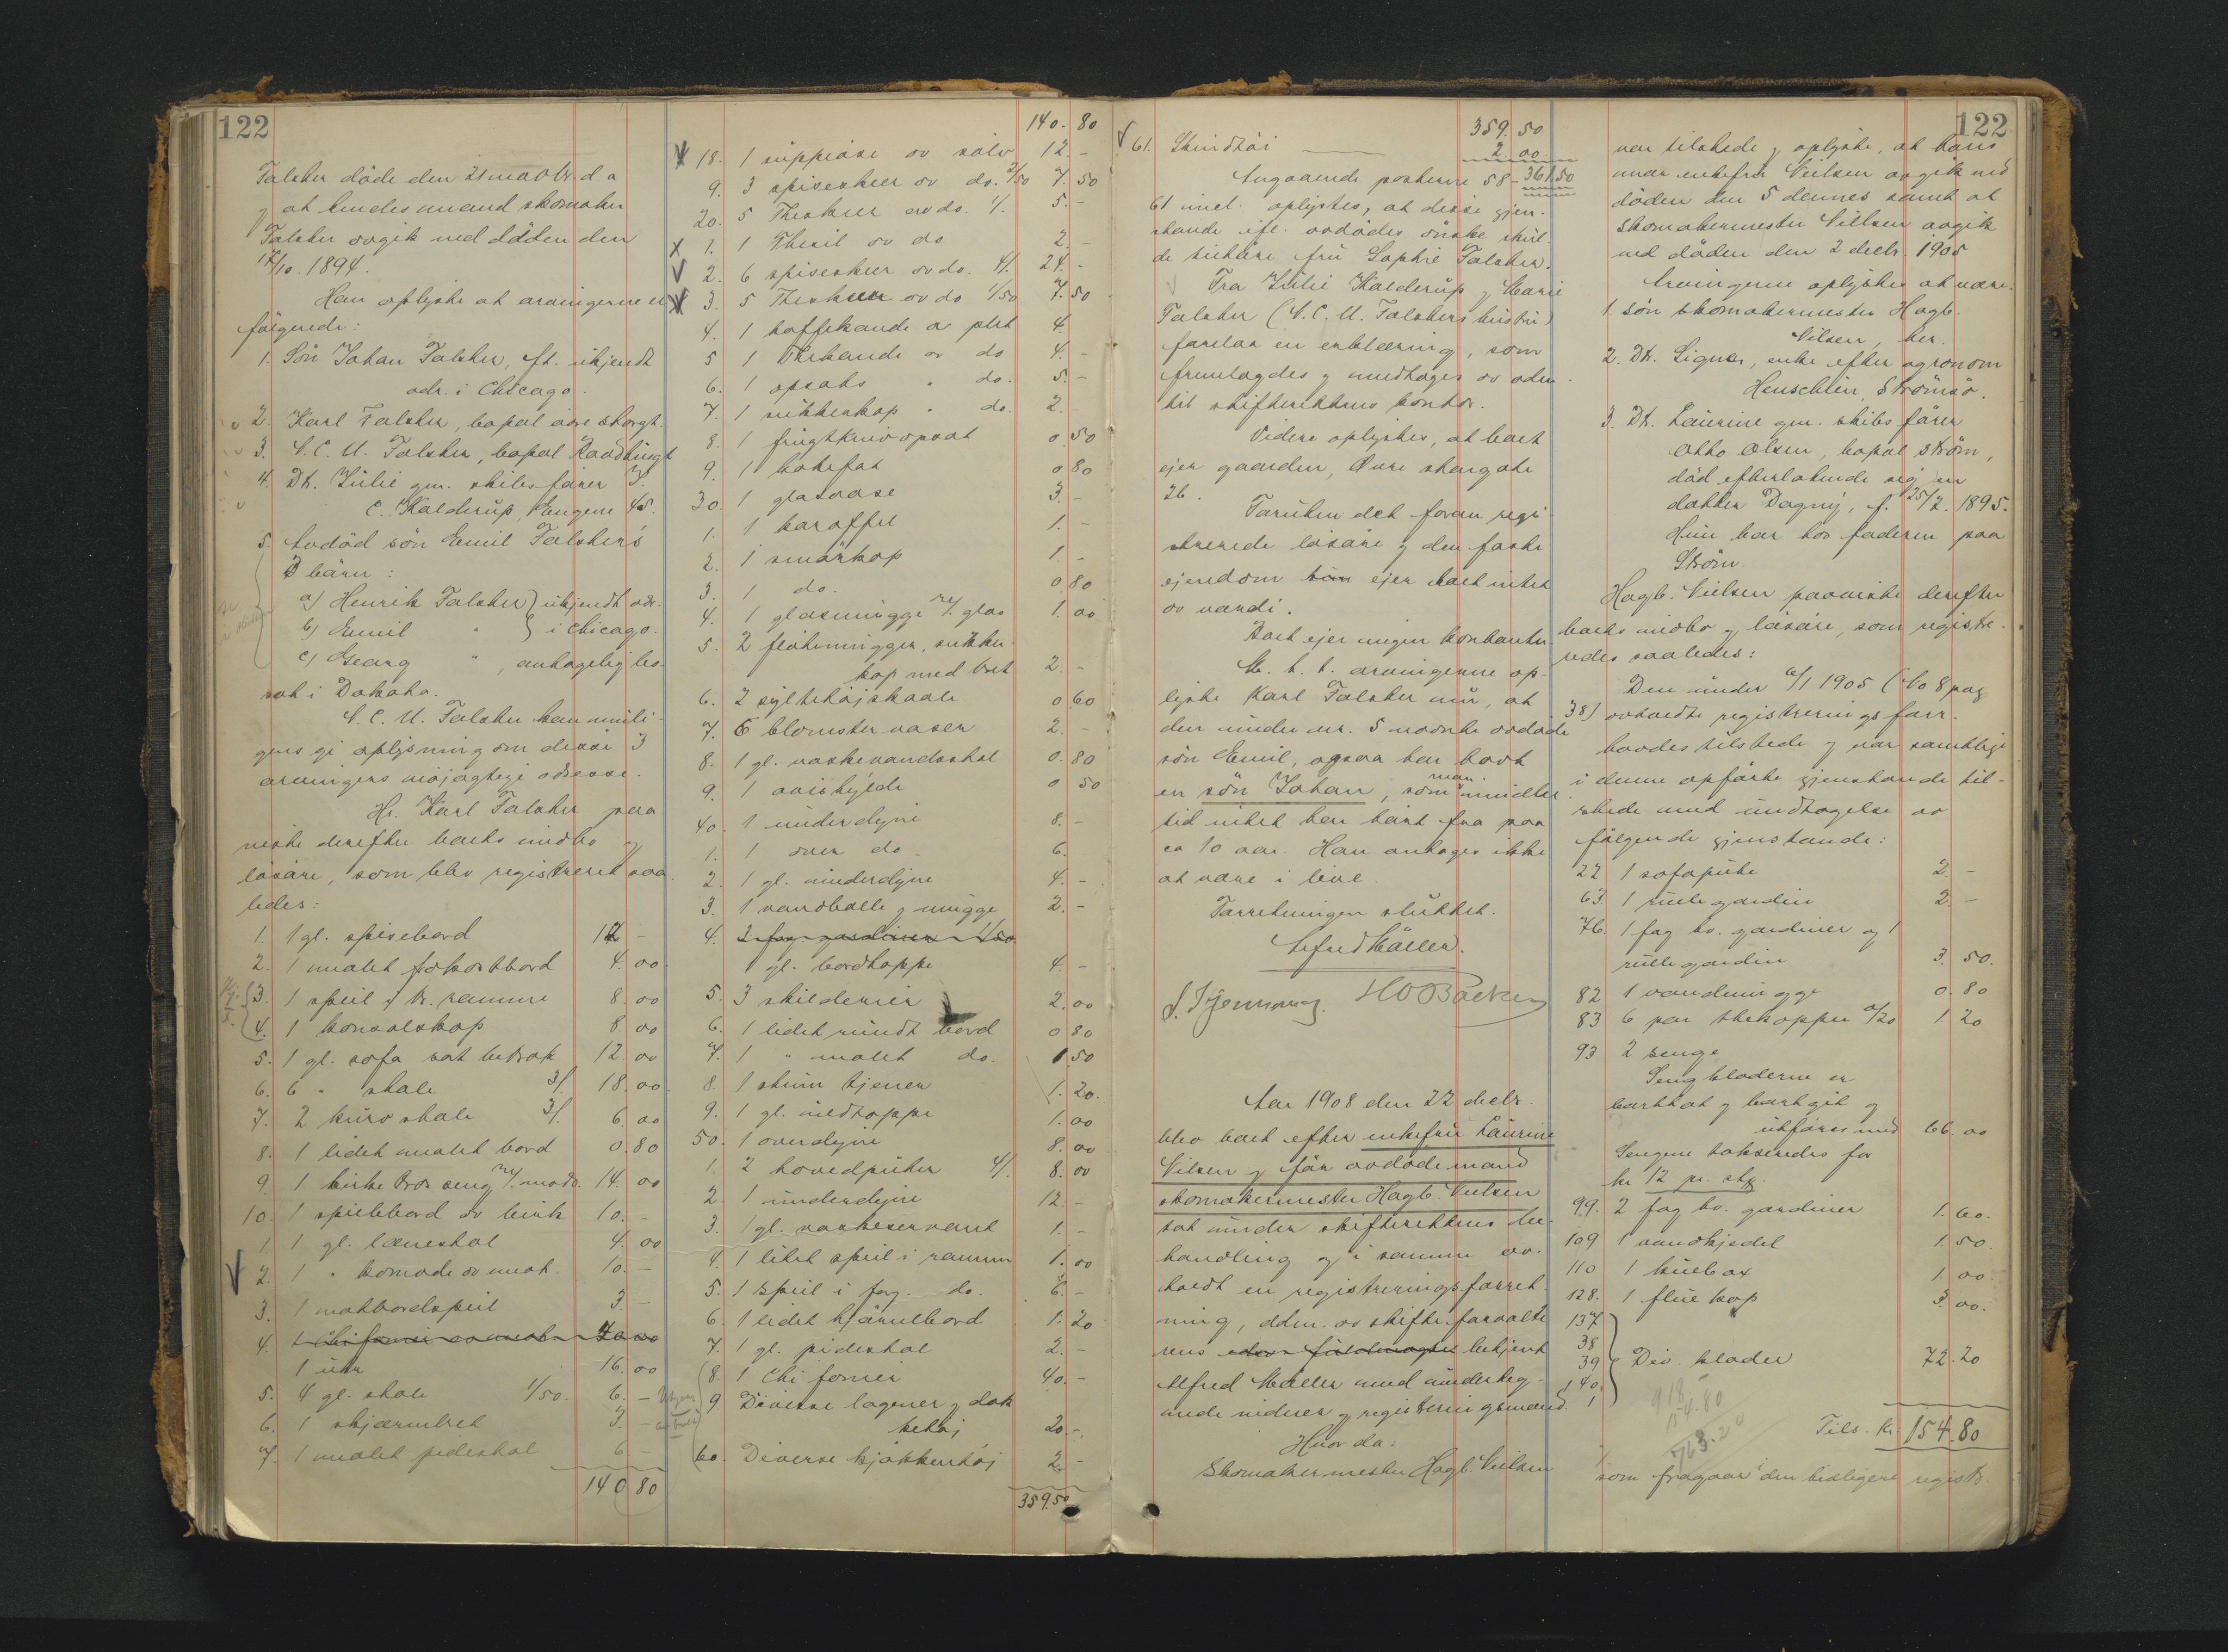 122
Falsher döde den 21 novbr. d a
og at hendes mand skomaker
Falsher avgik ved döden den
17/10. 1894.
Han oplyste at arvingerne er
fölgende:
1. Sön Johan Falsher, ft. ukjendt
adr. i Chicago.
2. Karl Falsher, bopal övre storgt.
3. N. C. U. Falsher, bopal Raadhusgt
4. Dt. Julie gm. skibsförer
C. Kalderup, Eugene 45.
5. Avdöd sön Emil Falsher's
3 bärn:
a) Henrik Falsher } ukjendt adr.
b) Emil " } i Chicago.
c) Georg " , antagelig bo-
sat i Dakota.
N. C. U. Falsher kan muli-
gens gi oplysning om disse 3
arvingers nöjagtige adresse.
Hr. Karl Falsher paa
viste derefter boets indbo og
lösöre, som blev registreret saa
ledes:
1. 1 gl. spisebord 12 -
2. 1 malet frokostbord 4. 00
3. 1 speil i br. ramme 8. 00
4. 1 konsolskap 8. 00
5. 1 gl. sofa sat betrak 12. 00
6. 6 " stole 3/ 18. 00
7. 2 kurvstole 3/. 6. 00
8. 1 lidet malet bord 0. 80
9. 1 birketræs seng m/. madr. 14. 00
10. 1 spillebord av birk 10. -
1. 1 gl. lænestol 4. 00
2. 1 " komode av mah. 10. -
3. 1 natbordspeil 3. -
4. 1 chifonier av mah. 40 00
1 uhr 16. 00
5. 4 gl. stole 1/50. 6. -
6. 1 skjærmbret 3. -
7. 1 malet pidestal 6 -
140 80
140. 80
18. 1 suppeöse av sölv 12. -
9. 3 spiseskeer av do. 2/50 7. 50
20. 5 Theskeer av do. 1/. 5. -
1. 1 Thesil av do 2. -
2. 6 spiseskeer av do. 4/. 24. -
3. 5 Theskeer av do 1/50 7. 50
4. 1 kaffekande a plet 4.
5 1 Thekande av do 4. -
6. 1 opsats " do. 5. -
7. 1 sukkerkop " do. 2.
8. 1 frugtknivopsat 0. 50
9. 1 kakefat 0 80
30. 1 glasvase 3. -
1. 1 karaffel 1. -
2. 1 smörkop 1. -
3. 1 do. 0 80
4. 1 glasmugge m/. glas 1. 00
5. 2 flötemugger, sukker
kop med bret 2. -
6. 2 syltetöjskaale 0 60
7. 6 blomstervaser 2. -
8. 1 gl. vaskevandsstel 0. 80
9. 1 avishylde 0 50
40. 1 underdyne 8. -
1. 1 over do. 6.
2. 1 gl. underdyne 4. -
3. 1 vandbalie og mugge 2. -
4. 3 fag gardiner 1/50
1 gl. bordtæppe 4. -
5. 3 skilderier 2. 00
6. 1 lidet rundt bord 0 80
7. 1 " malet do. 1. 50
8. 1 stum tjener 1. 20.
9. 1 gl. uldtæppe 1. 00
50. 1 overdyne 8. 00
1. 2 hovedputer 4/. 8. 00
2. 1 underdyne 12. -
3. 1 gl. vaskeservant 1. -
4. 1 litet speil i ramme 1. 00
5. 1 speil i forg. do. 6. -
6. 1 lidet hjörnebord 1. 20
7. 1 gl. pidestal 2. -
8. 1 Chifonier 40. -
9 Diverse lagener og dæk
ketöj 20. -
60. Diverse kjökkentöj 2. -
359.50
122
359. 50
61. Skindtöi 2. 00.
361.50
Angaaende posterne 58 -
61 incl. oplystes, at disse gjen-
stande ifl. avdödes önske skul-
de tilhöre fru Sophie Falsher.
Fra Julie Kalderup og Marie
Falsher (N. C. U. Falshers hustru)
forelaa en erklæring, som
fremlagdes og medtages av adm.
til skifterettens kontor.
Videre oplystes, at boet
ejer gaarden, Övre storgate
26.
Foruten det foran regi
strerede lösöre og den faste
ejendom ejer boet intet
av værdi.
Boet ejer ingen kontanter
M. h. t. arvingerne op-
lyste Karl Falsher nu, at
den under nr. 5 nævnte avdöde
sön Emil, ogsaa har havt
en sön Johan, som man imidler
tid intet har hört fra paa
ca 10 aar. Han antages ikke
at være i live.
Forretningen sluttet.
Alfred Möller.
Aar 1908 den 22 decbr.
blev boet efter enkefru Laurine
Nilsen og för avdöde mand
skomakermester Hagb. Nielsen
tat under skifterettens be-
handling og i samme av-
holdt en registreringsforret-
ning, adm. av skifteforvalte
rens edsv. fuldmægtig betjent
Alfred Möller med underteg-
nede vidner og registreringsmænd.
Hvorda:
Skomakermester Hagb. Nielsen
var tilstede og oplyste, at hans
mor enkefru Nielsen avgik ved
döden den 5 dennes samt at
skomakermester Nielsen avgik
ved döden den 2 decbr. 1905
Arvingerne oplystes at være:
1. sön skomakermester Hagb.
Nilsen, her.
2. Dt. Signe, enke efter agronom
Henschien, Strömsö.
3. Dt. Laurine gm. skibsförer
Otto Olsen, bopal Ström,
död efterlatende sig en
datter Dagny, f. 25/2. 1895.
Hun bor hos faderen paa
Ström.
Hagb. Nielsen paaviste derefter
boets indbo og lösöre, som registre-
redes saaledes:
Den under 6/1 1905 (No 8 pag
38) avholdte registreringsforr.
havdes tilstede og var samtlige
i denne opförte gjenstande til-
stede med undtagelse av
fölgende gjenstande:
22 1 sofapute 2. -
63. 1 rullegardin 2. -
76. 1 fag hv. gardiner og 1
rullegardin 3. 50.
82 1 vandmugge 0. 80
83 6 par thekopper a/20 1. 20
93 2 senge
Sengklæderne er
borttat og bortgit og
utföres med 66. 00
Sengene takseredes for
kr 12 pr. stk.
99. 2 fag hv. gardiner 1. 60.
109 1 vandkjedel 1. 50.
110 1 kulbox 1. 00
128. 1 flueskap 3. 00.
137
38
39 } Div. klæder 72. 20
140.
1
918.
154.80
763.20
Tils. kr. 154.80
som fragaar i den tidligere registr.